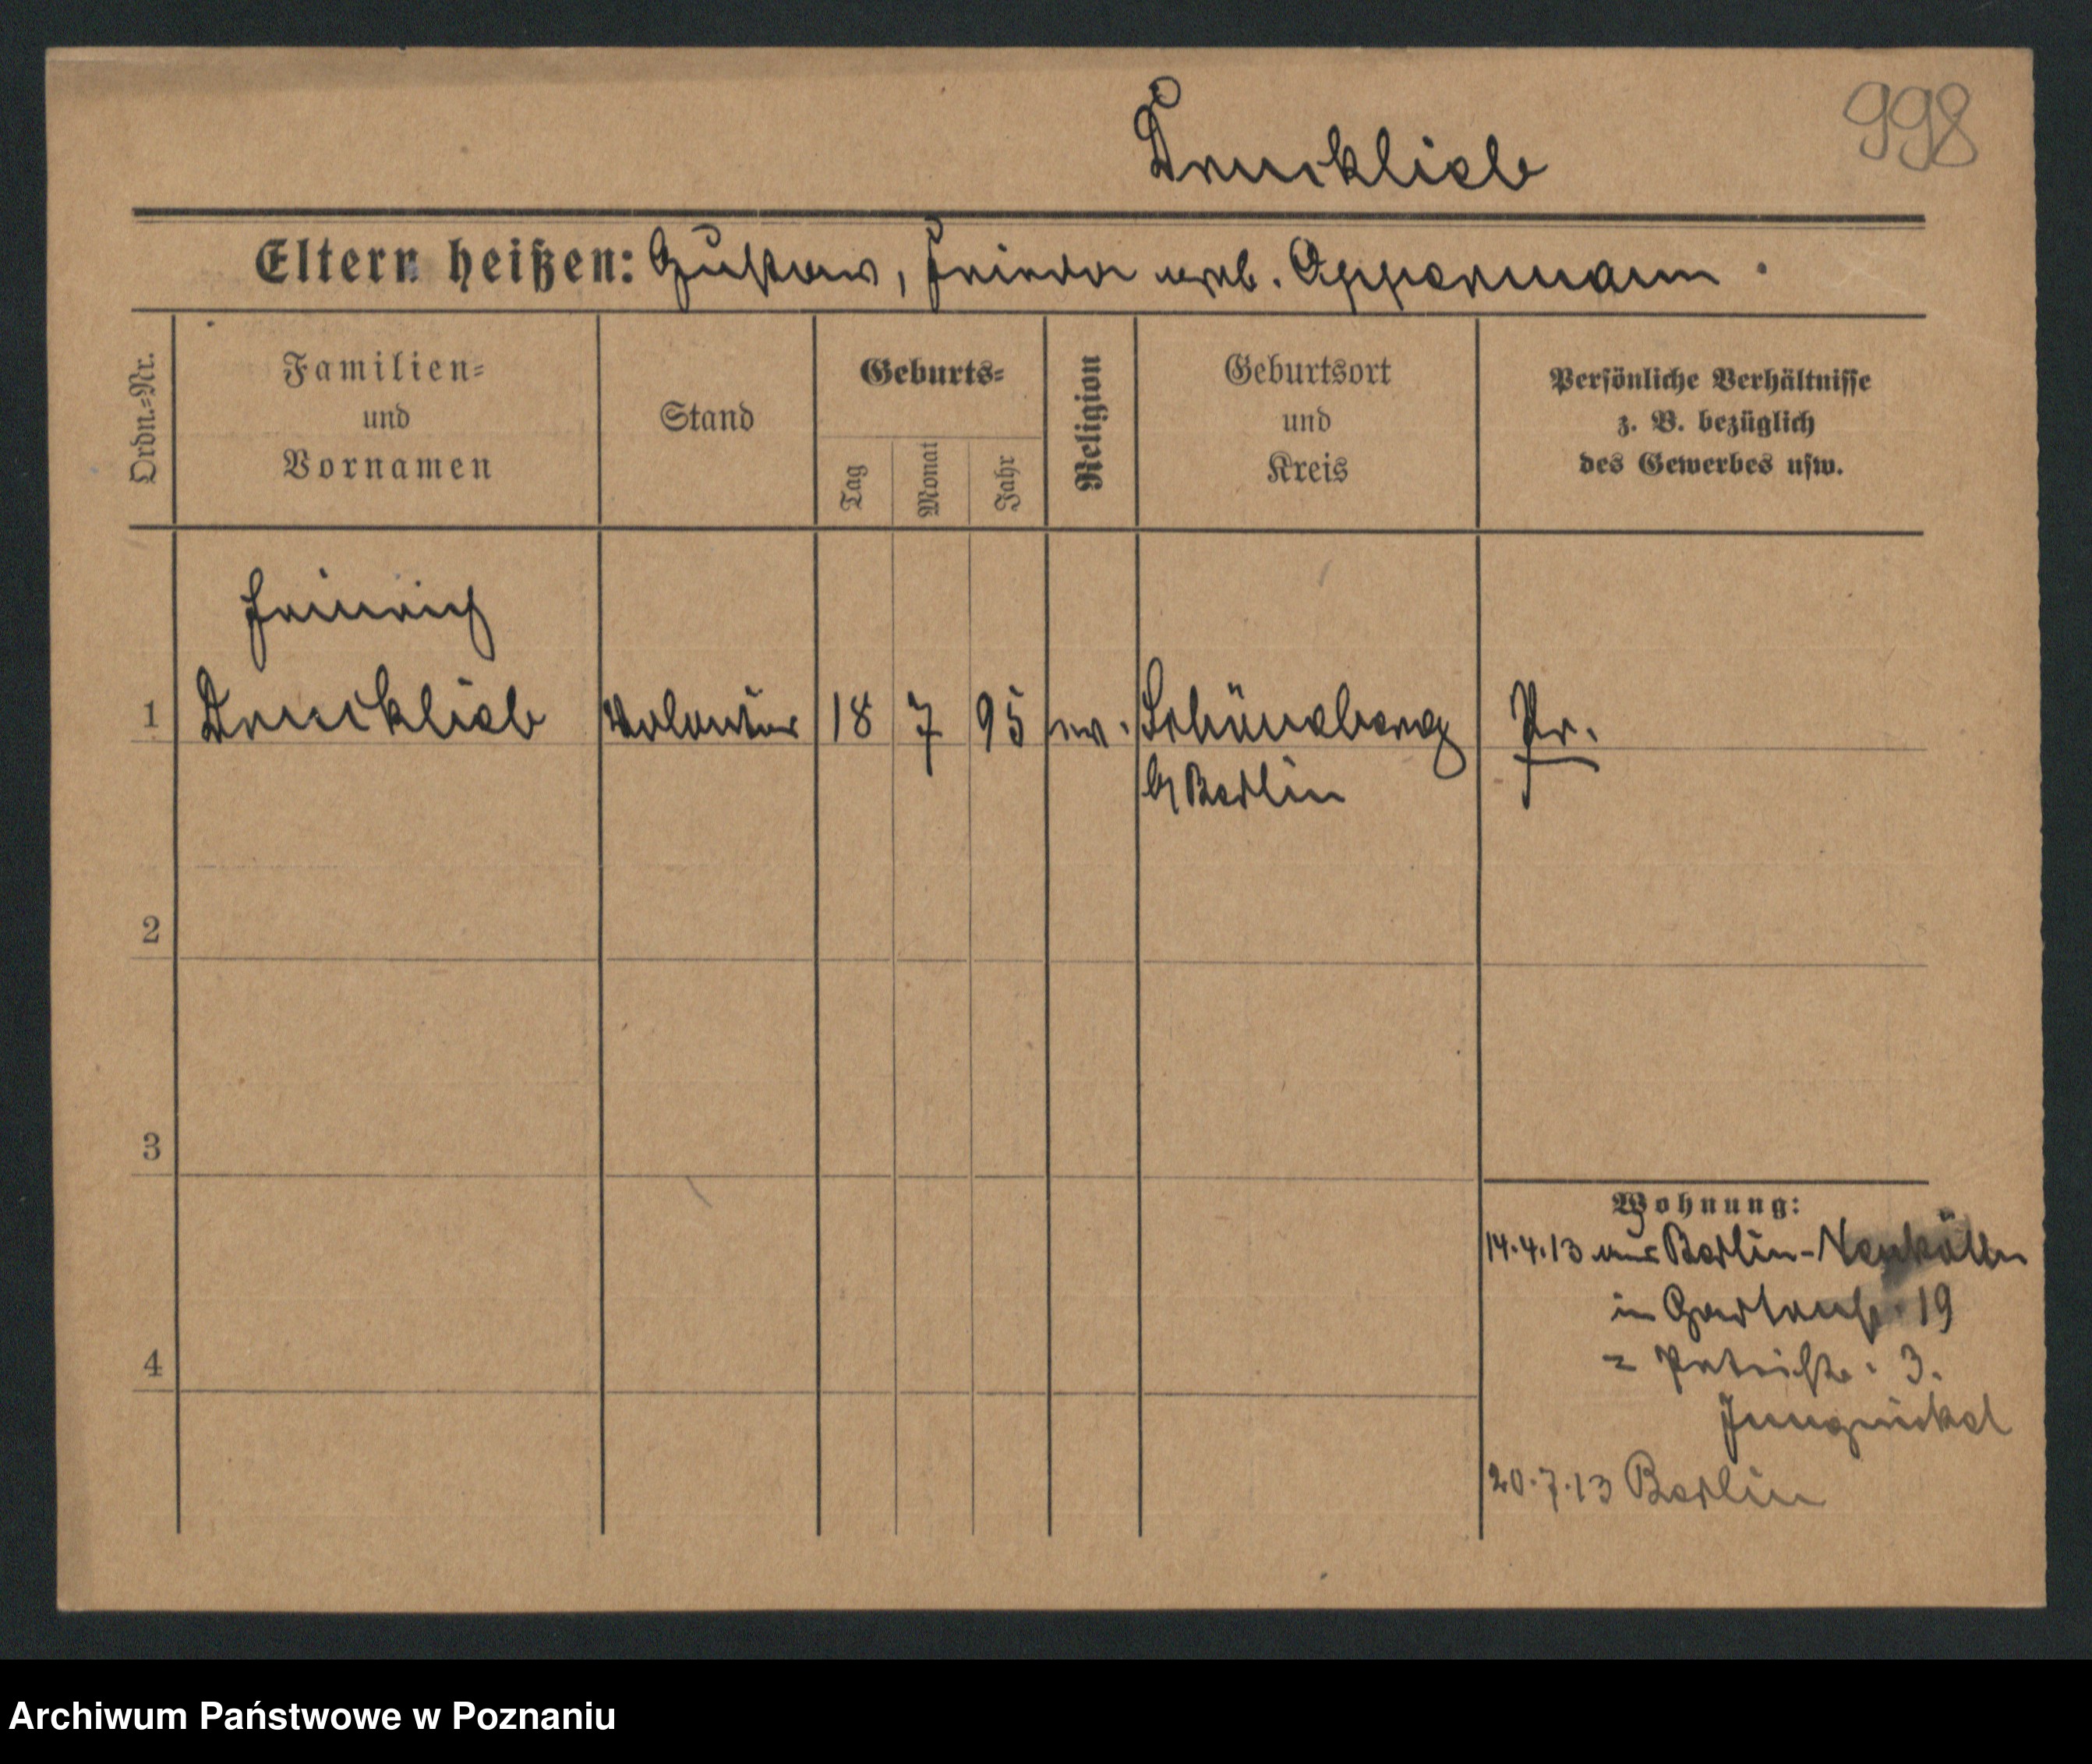 998
Drucklieb
Eltern heißen: Gustav, Frieda geb. Oppermann.
Ordn.=Nr.
Familien=
und
Vornamen
Stand
Geburts=
Tag
Monat
Jahr
Religion
Geburtsort
und
Kreis
Persönliche Verhältnisse
z. B. bezüglich
des Gewerbes usw.
Heinrich
1 Drucklieb Volontär 18 7 95 ev. Schöneberg Pr.
b/ Berlin
2
3
4
Wohnung:
14.4.13 aus Berlin-Neukölln
in Gartenstr. 19
= 3.
20.7.13 Berlin
Archiwum Państwowe w Poznaniu